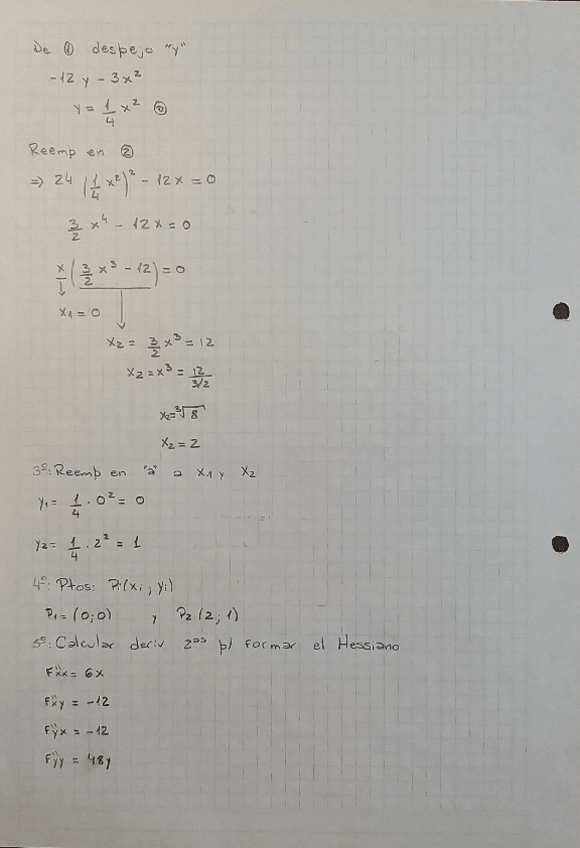 De ① despejo "y"
-12 y - 3x²
y = 1/4 x² ⓐ
Reemp en ②
=> 24 (1/4 x²)² - 12x = 0
3/2 x⁴ - 12x = 0
x (3/2 x³ - 12) = 0
x₁ = 0
x₂ = 3/2 x³ = 12
x₂ = x³ = 12/3/2
x₂ = ³√8
x₂ = 2
3º: Reemp en "a" a x₁ y x₂
y₁ = 1/4 · 0² = 0
y₂ = 1/4 · 2² = 1
4º: Ptos: Pi(xi ; yi)
P₁ = (0;0) y P₂ (2; 1)
5º: Calcular deriv 2ᵃˢ p/ formar el Hessiano
F''xx = 6x
F''xy = -12
F''yx = -12
F''yy = 48y